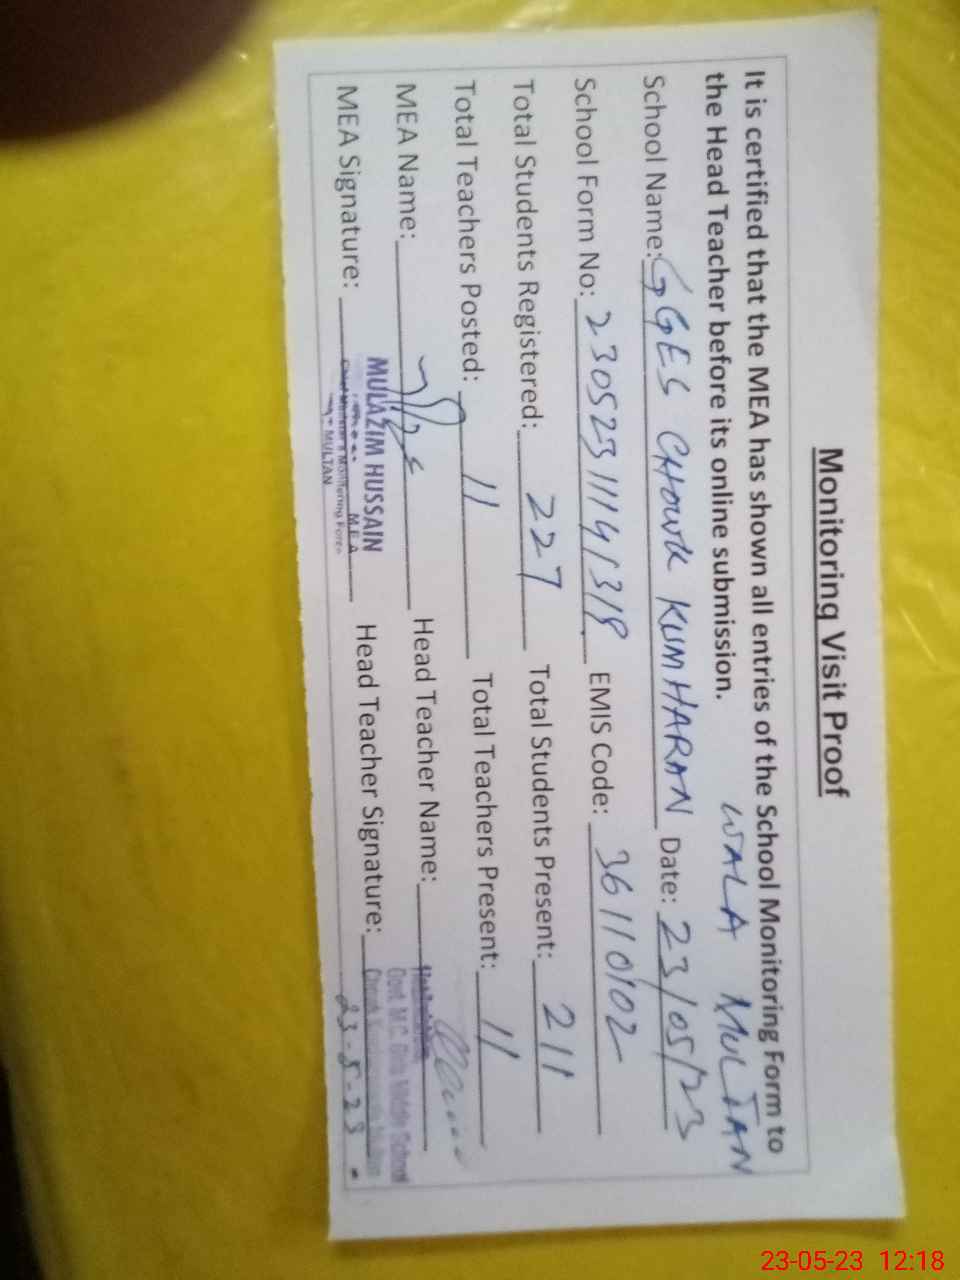 Monitoring Visit Proof
It is certified that the MEA has shown all entries of the School Monitoring Form to
the Head Teacher before its online submission.
WALA MULTAN
School Name: GGES CHOWK KUMHARAN Date: 23/05/23
School Form No: 23052311141318 EMIS Code: 36110102
Total Students Registered: 227 Total Students Present: 211
Total Teachers Posted: 11 Total Teachers Present: 11
MEA Name: Head Teacher Name:
MULAZIM HUSSAIN
M.E.A
Chief Minister's Monitoring Force
MULTAN
Govt. M.C. Girls Middle School
MEA Signature: Head Teacher Signature:
23-5-23
23-05-23 12:18